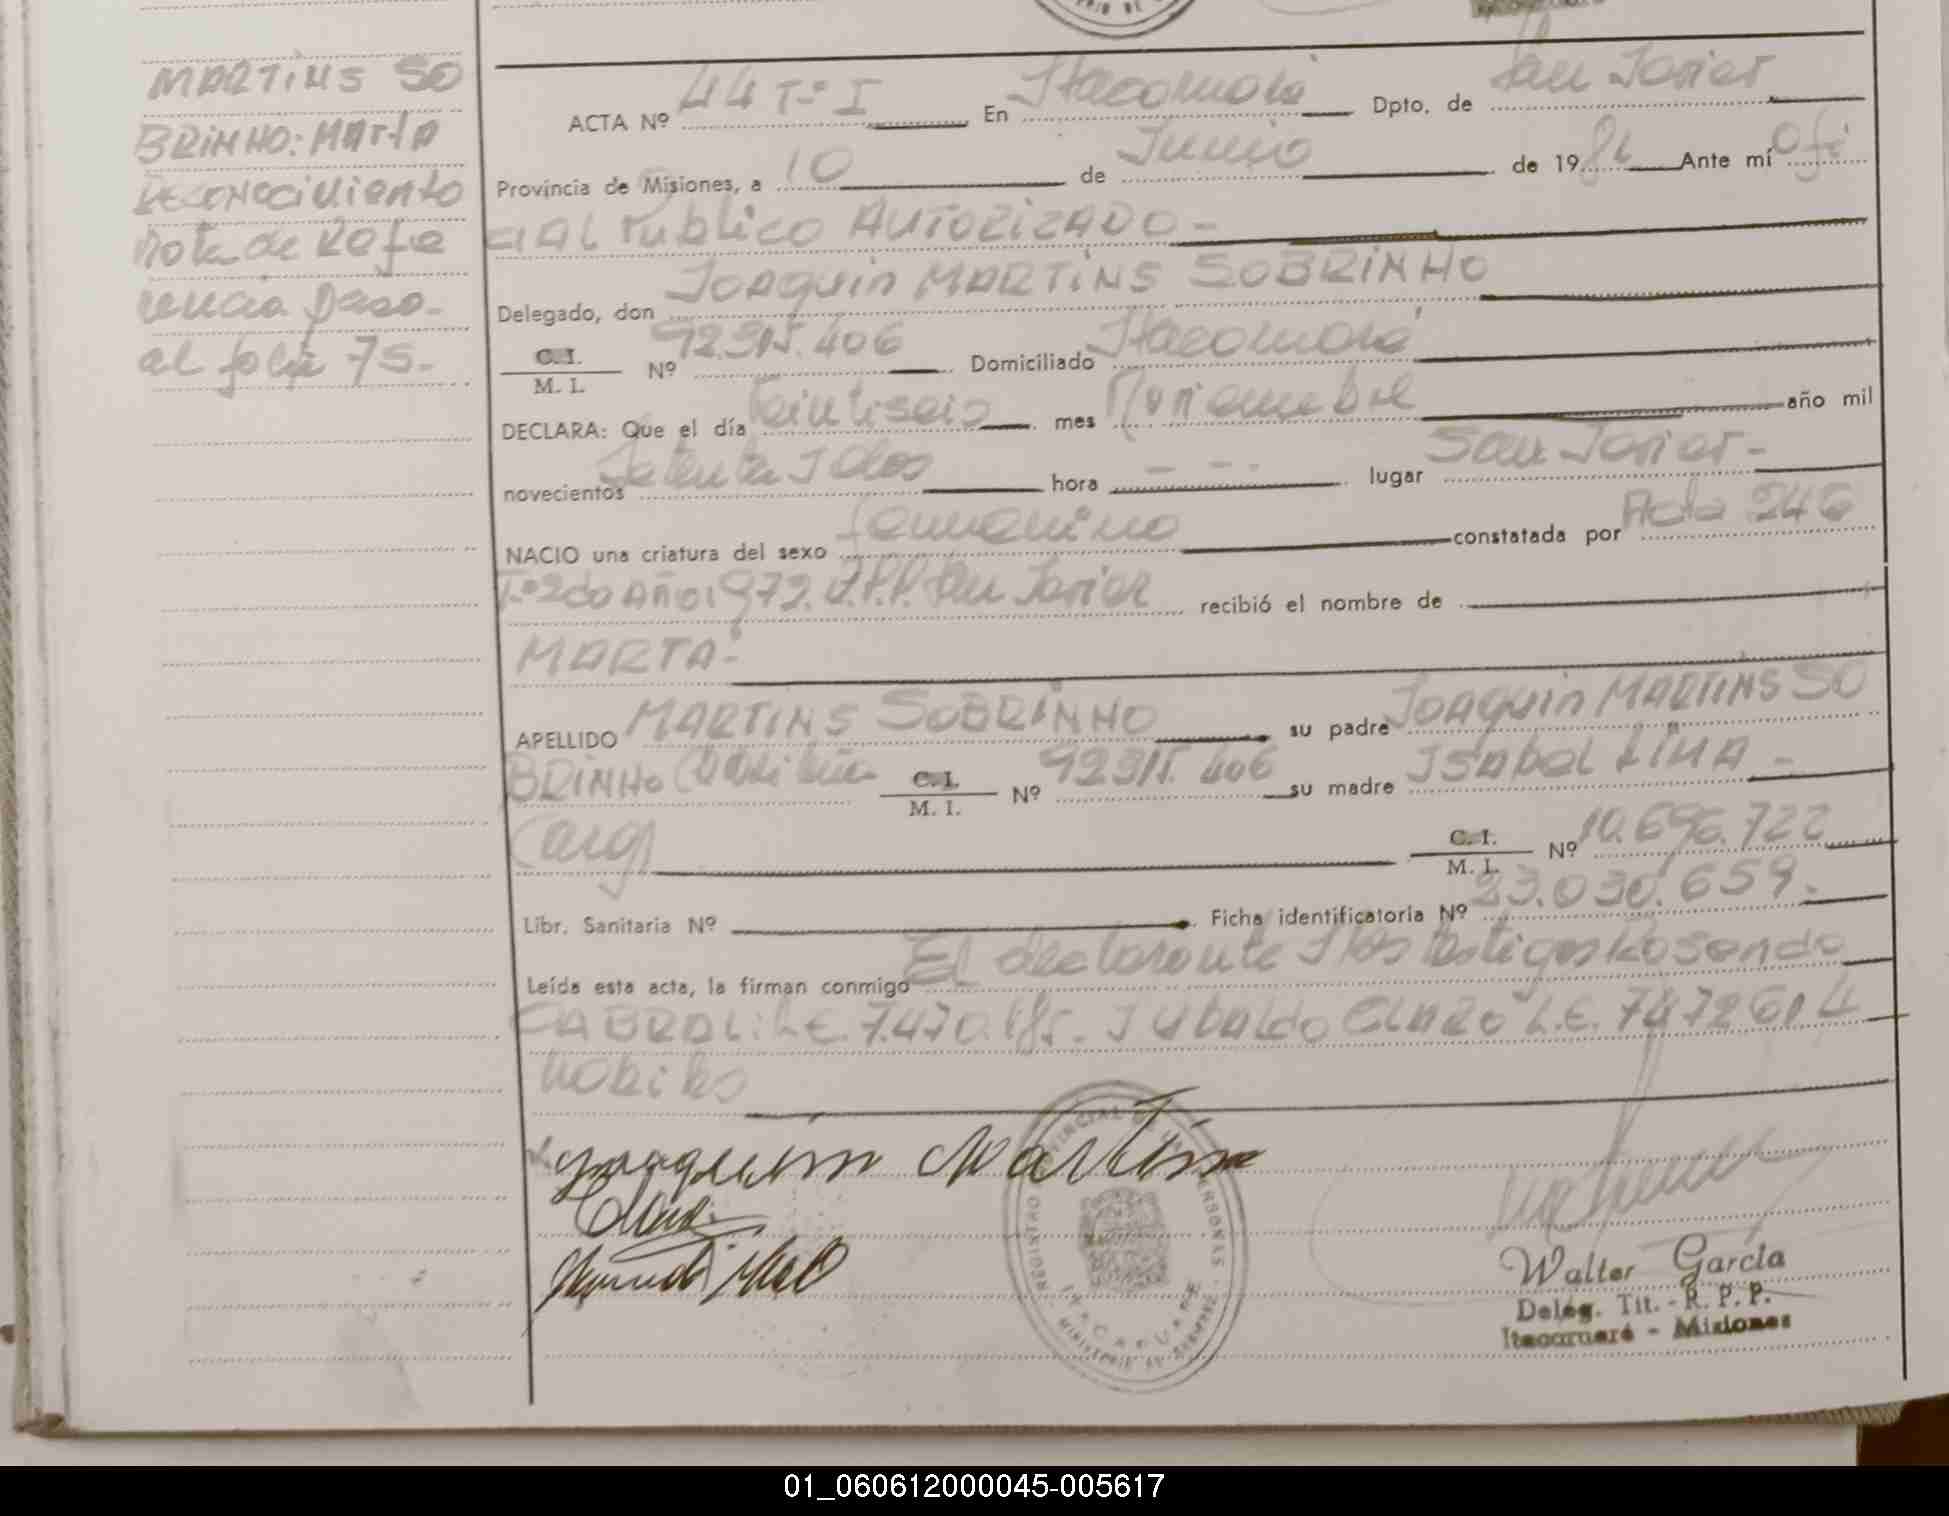 MARTINS SO
BRINHO: MARTA
Reconocimiento
Nota de Refe
rencia paso
al folio 75.-
ACTA Nº 44 Tº I En Itacaruaré Dpto. de San Javier
Provincia de Misiones, a 10 de Junio de 19 Ante mí Ofi
cial Público AUTORIZADO -
Delegado, don JOAQUIN MARTINS SOBRINHO
C. I. M. I. Nº 92.315.406 Domiciliado Itacaruaré
DECLARA: Que el día Veintiseis mes Noviembre año mil
novecientos Setenta y dos hora - - - lugar San Javier -
NACIO una criatura del sexo femenino constatada por Acta 246
Tº 2do Año 1972. R.P.P. San Javier recibió el nombre de
MARTA -
APELLIDO MARTINS SOBRINHO su padre JOAQUIN MARTINS SO
BRINHO C. I. M. I. Nº 92315.406 su madre ISABEL LIMA -
C. I. M. I. Nº 10.696.722
Libr. Sanitaria Nº Ficha identificatoria Nº 23.030.659.
Leída esta acta, la firman conmigo El declarante y los testigos Rosendo
CABRAL: L.E. y UBALDO L.E.
Joaquim Martins
REGISTRO PROVINCIAL DE LAS PERSONAS
ITACARUARE
MINISTERIO DE GOBIERNO
Walter García
Deleg. Tit. - R. P. P.
Itacaruaré - Misiones
01_060612000045-005617